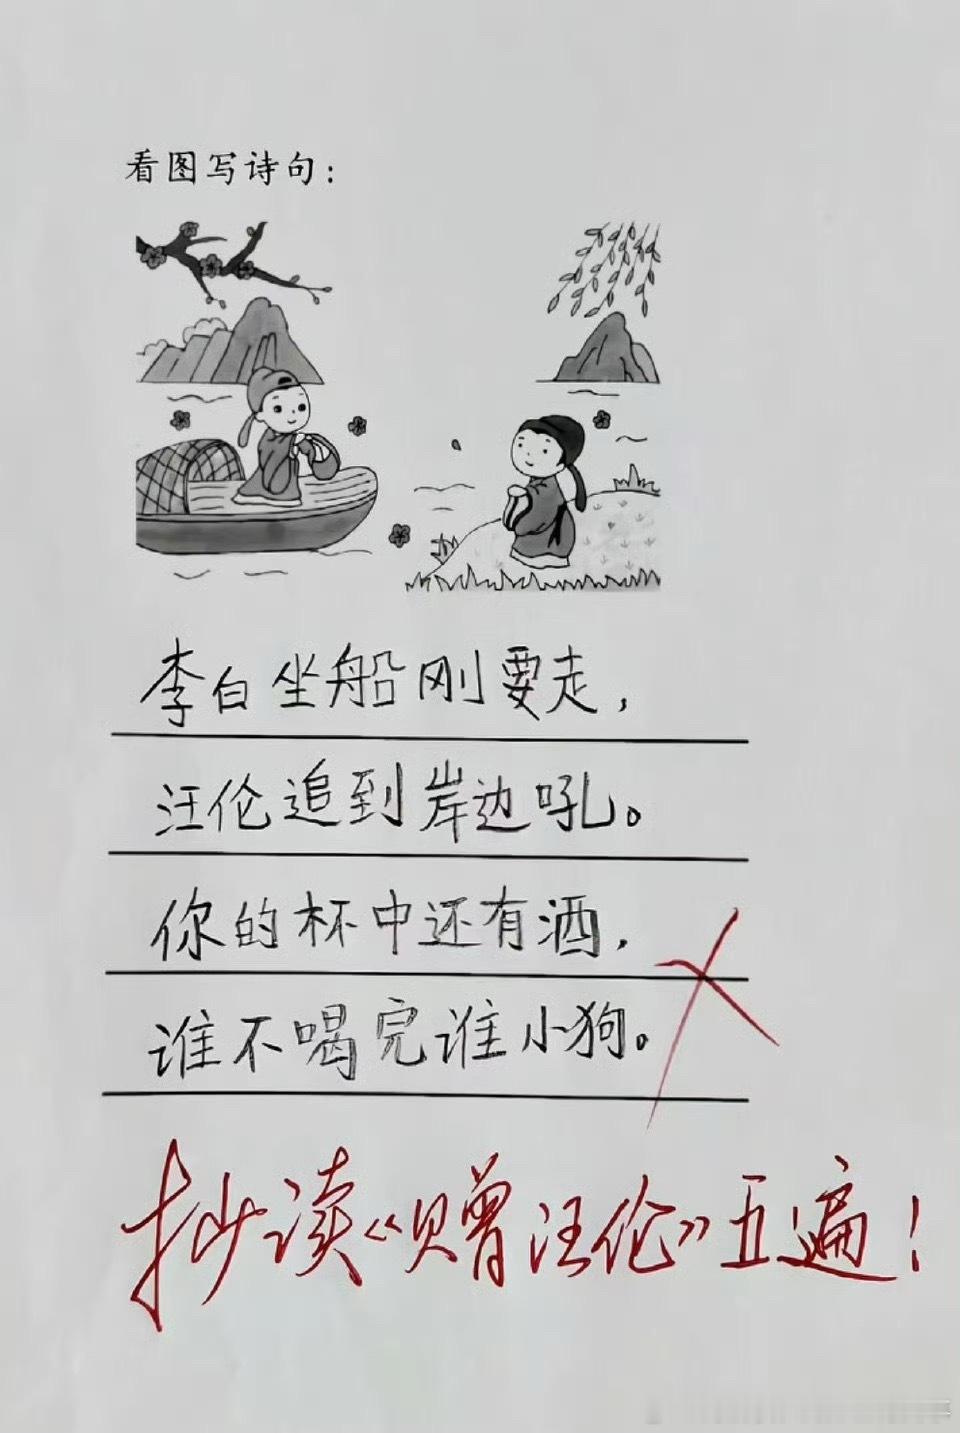 看图写诗句：
李白坐船刚要走，
汪伦追到岸边吼。
你的杯中还有酒，
谁不喝完谁小狗。
抄读《赠汪伦》五遍！